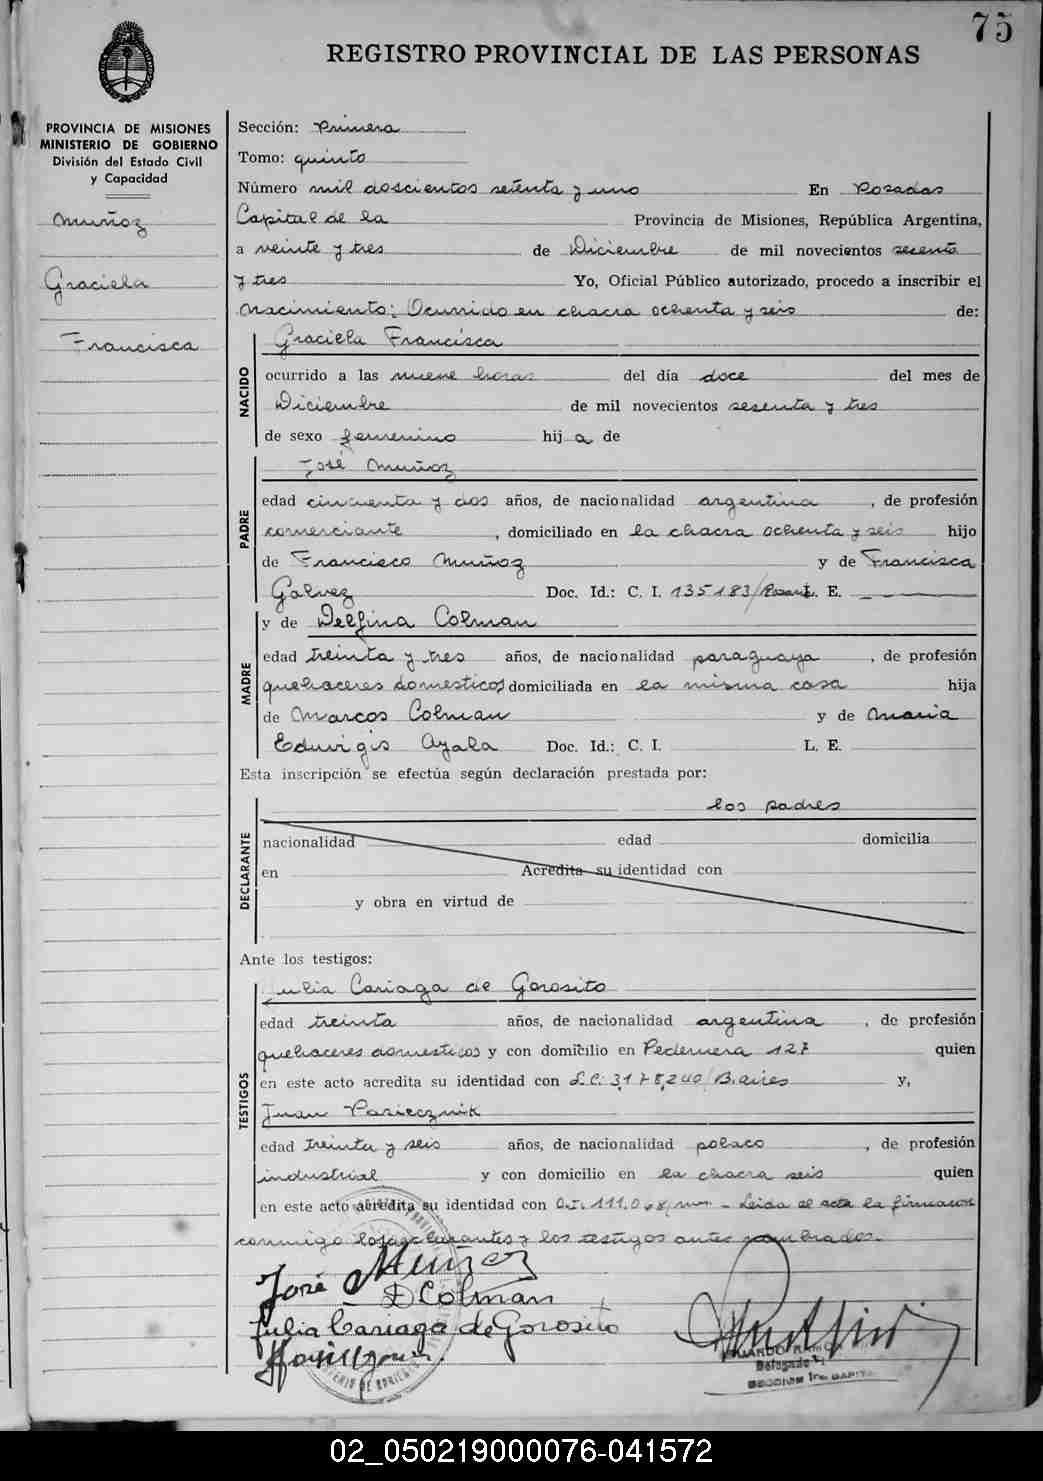 75
REGISTRO PROVINCIAL DE LAS PERSONAS
PROVINCIA DE MISIONES
MINISTERIO DE GOBIERNO
División del Estado Civil
y Capacidad
Muñoz
Graciela
Francisca
Sección: Primera
Tomo: quinto
Número mil doscientos setenta y uno En Posadas
Capital de la Provincia de Misiones, República Argentina,
a veinte y tres de Diciembre de mil novecientos sesenta
y tres Yo, Oficial Público autorizado, procedo a inscribir el
nacimiento: Ocurrido en chacra ochenta y seis de:
NACIDO
Graciela Francisca
ocurrido a las nueve horas del día doce del mes de
Diciembre de mil novecientos sesenta y tres
de sexo femenino hij a de
PADRE
José Muñoz
edad cincuenta y dos años, de nacionalidad argentina, de profesión
comerciante, domiciliado en la chacra ochenta y seis hijo
de Francisco Muñoz y de Francisca
Galvez Doc. Id.: C. I. 135183/Rosario L. E.
y de Delfina Colman
MADRE
edad treinta y tres años, de nacionalidad paraguaya, de profesión
quehaceres domesticos domiciliada en la misma casa hija
de Marcos Colman y de Maria
Eduvigis Ayala Doc. Id.: C. I. L. E.
Esta inscripción se efectúa según declaración prestada por:
los padres
DECLARANTE
nacionalidad edad domicilia
en Acredita su identidad con
y obra en virtud de
Ante los testigos:
TESTIGOS
Julia Cariaga de Gorosito
edad treinta años, de nacionalidad argentina, de profesión
quehaceres domesticos y con domicilio en Pedernera 127 quien
en este acto acredita su identidad con L.C. 3,178,240/B.aires y,
Juan
edad treinta y seis años, de nacionalidad polaco, de profesión
industrial y con domicilio en la chacra seis quien
en este acto acredita su identidad con - Leida el acta la firmaron
conmigo los declarantes y los testigos antes nombrados.-
José Muñoz
D Colman
Julia Cariaga de Gorosito
Delegado
SECCION 1ra. CAPITAL
02_050219000076-041572